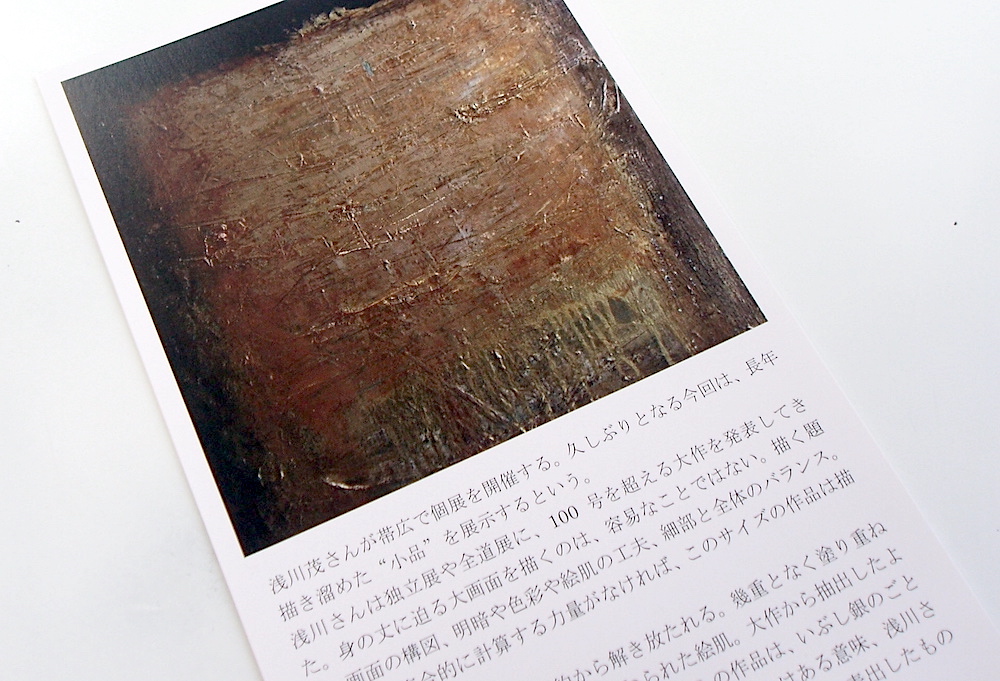 浅川茂さんが帯広で個展を開催する。久しぶりとなる今回は、長年
描き溜めた“小品”を展示するという。
浅川さんは独立展や全道展に、100 号を超える大作を発表してき
た。身の丈に迫る大画面を描くのは、容易なことではない。描く題
画面の構図、明暗や色彩や絵肌の工夫、細部と全体のバランス。
合的に計算する力量がなければ、このサイズの作品は描
から解き放たれる。幾重となく塗り重ね
られた絵肌。大作から抽出したよ
の作品は、いぶし銀のごと
はある意味、浅川さ
出したもの